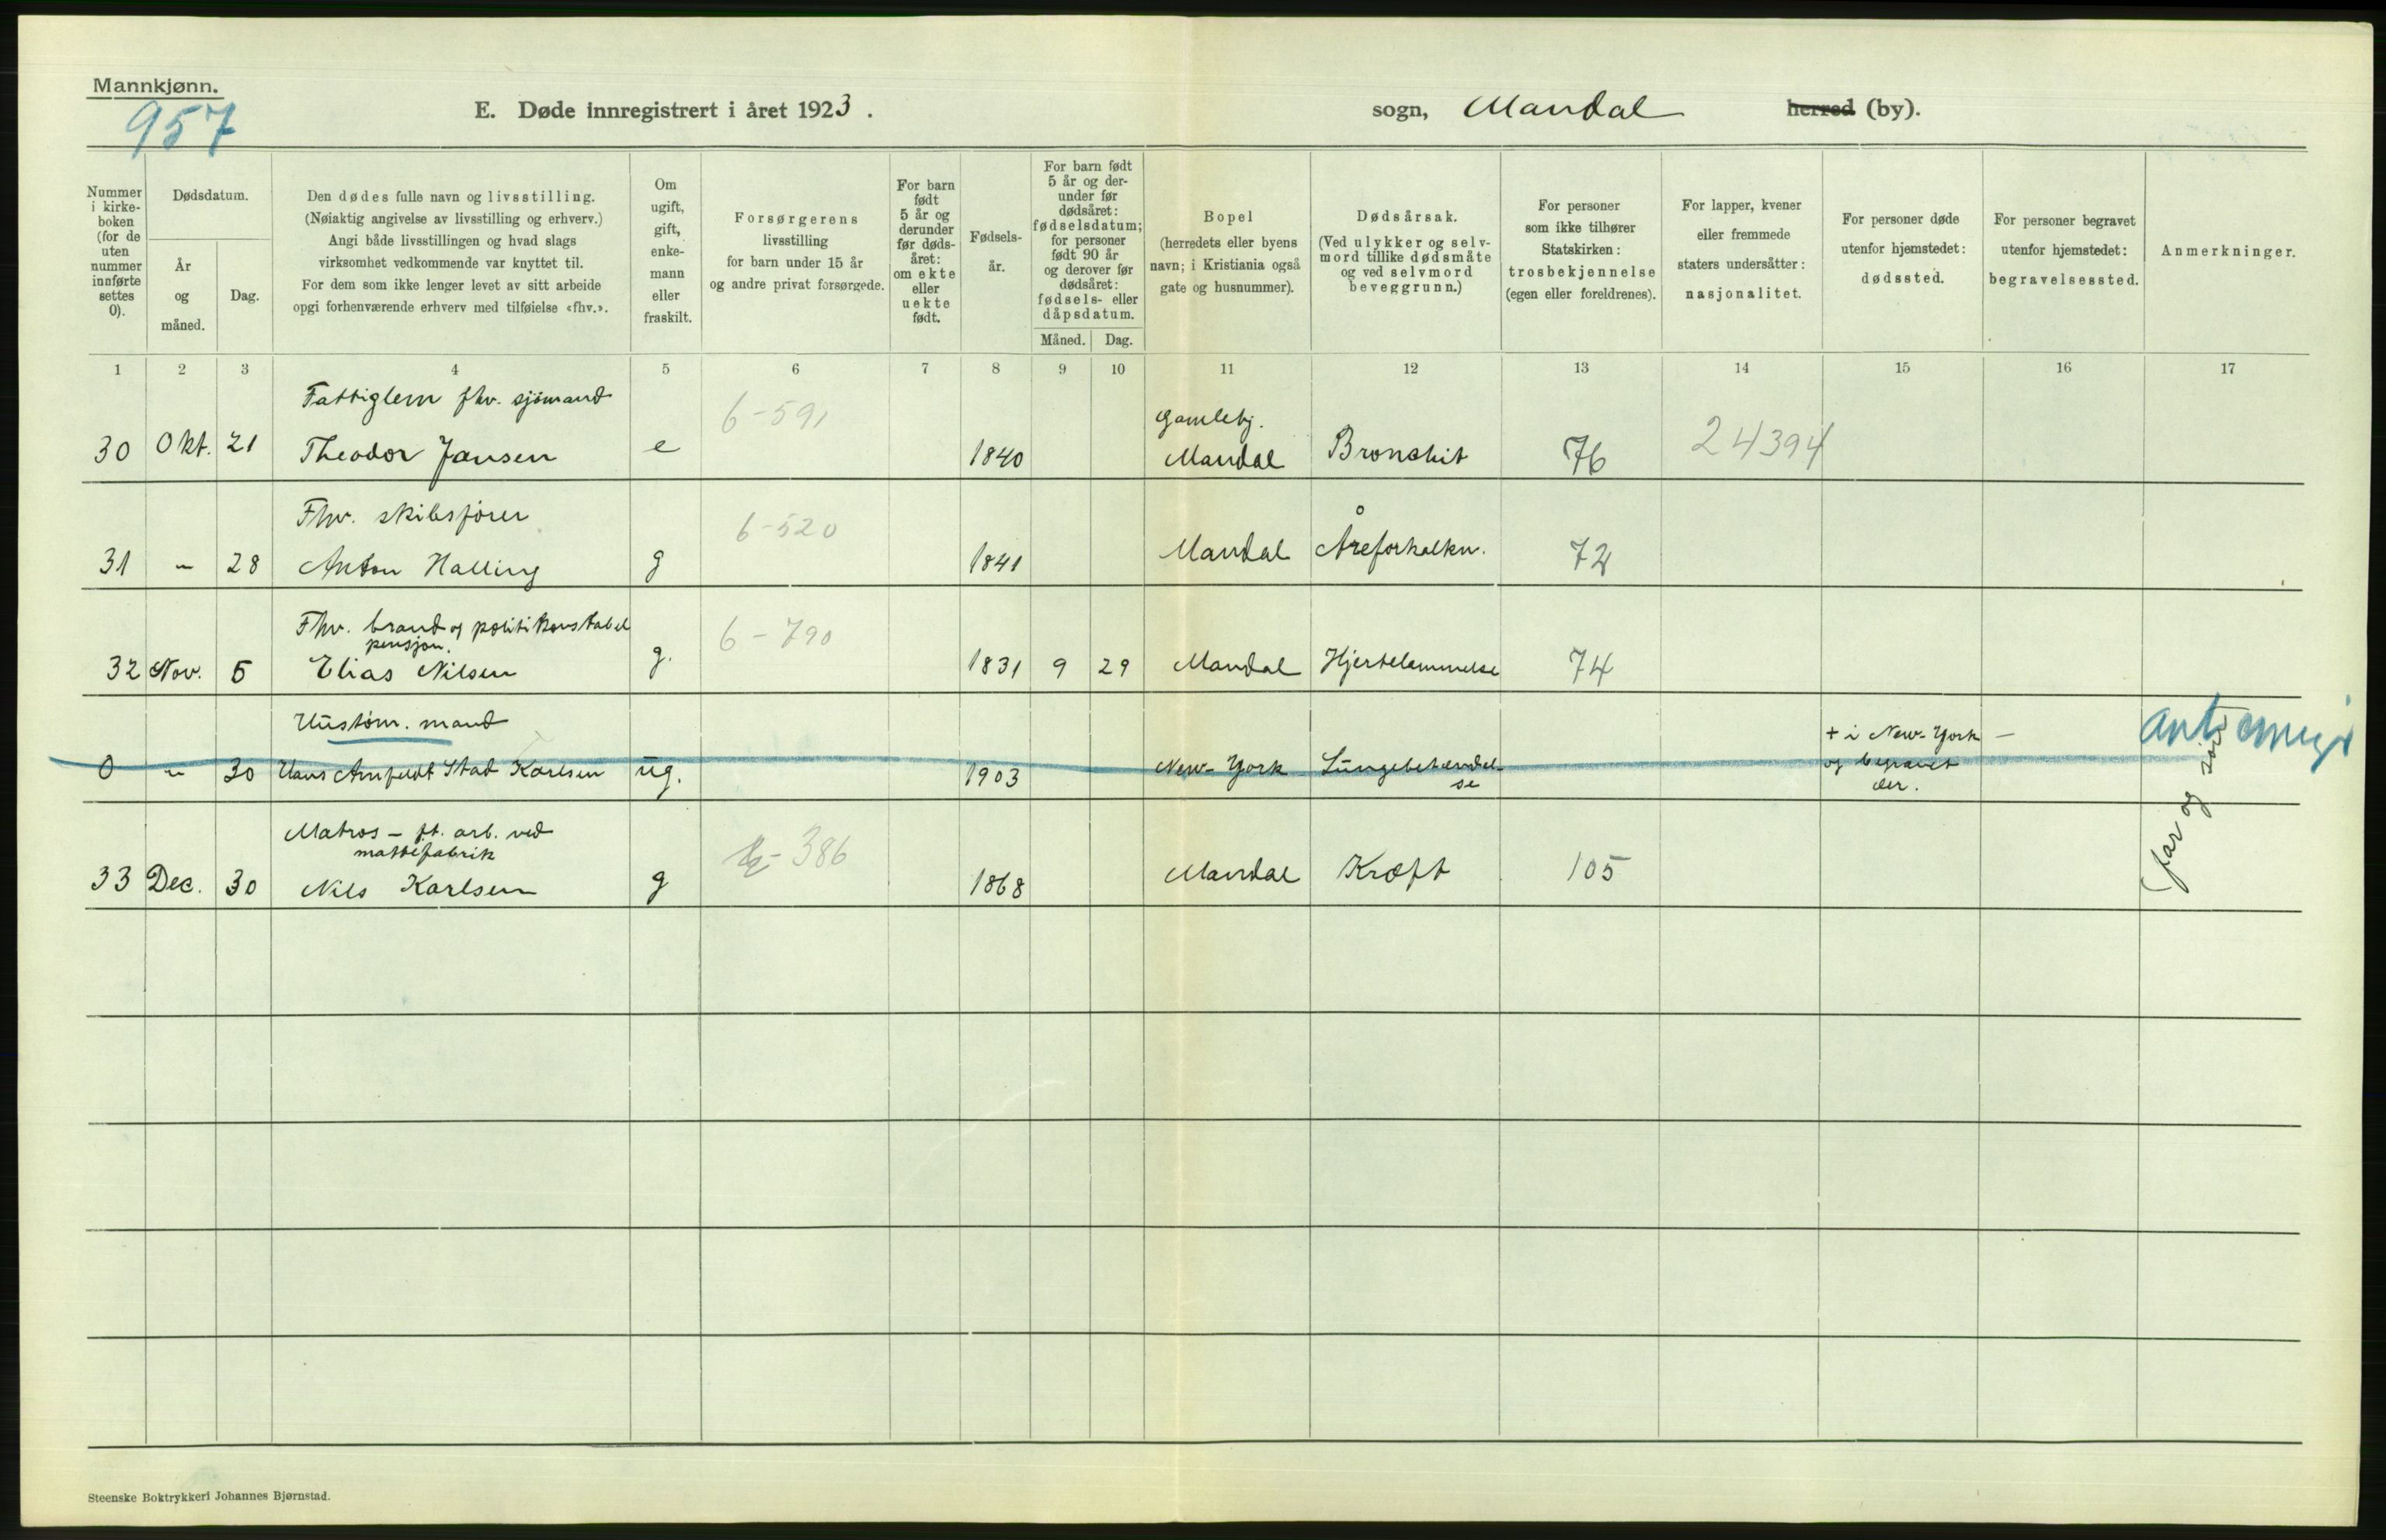 Mannkjønn.
957
E. Døde innregistrert i året 1923.
sogn, Mandal herred (by).
Nummer i kirke-boken (for de uten nummer innførte settes 0).
Dødsdatum.
År og måned.
Dag.
Den dødes fulle navn og livsstilling.
(Nøiaktig angivelse av livsstilling og erhverv.)
Angi både livsstillingen og hvad slags
virksomhet vedkommende var knyttet til.
For dem som ikke lenger levet av sitt arbeide
opgi forhenværende erhverv med tilføielse «fhv.».
Om ugift, gift, enke-mann eller fraskilt.
Forsørgerens
livsstilling
for barn under 15 år
og andre privat forsørgede.
For barn født 5 år og derunder før døds-året: om ekte eller uekte født.
Fødsels-år.
For barn født 5 år og der-under før dødsåret: fødselsdatum; for personer født 90 år og derover før dødsåret: fødsels- eller dåpsdatum.
Måned.
Dag.
Bopel
(herredets eller byens
navn; i Kristiania også
gate og husnummer).
Dødsårsak.
(Ved ulykker og selv-
mord tillike dødsmåte
og ved selvmord
beveggrunn.)
For personer
som ikke tilhører
Statskirken:
trosbekjennelse
(egen eller foreldrenes).
For lapper, kvener
eller fremmede
staters undersåtter:
nasjonalitet.
For personer døde
utenfor hjemstedet:
dødssted.
For personer begravet
utenfor hjemstedet:
begravelsessted.
Anmerkninger.
1 2 3 4 5 6 7 8 9 10 11 12 13 14 15 16 17
Fattiglem fhv. sjömand
6-591
Gamlehj.
30 Okt. 21 Theodor Jansen e 1840 Mandal Bronchit 76 24394
Fhv. skibsfører
6-520
31 - 28 Anton Halling g 1841 Mandal Åreforkalkn. 72
Fhv. brand og politikonstabel
pensjon.
6-790
32 Nov. 5 Elias Nilsen g. 1831 9 29 Mandal Hjertelammelse 74
mand
+ i New-York -
0 - 30 Hans Arnfeldt Stad Karlsen ug. 1903 New-York Lungebetændel-
se
og begravet
der.
Matros - p.t. arb. ved
mattefabrik
386
33 Dec. 30 Nils Karlsen g 1868 Mandal Kræft 105
far og søn
Steenske Boktrykkeri Johannes Bjørnstad.